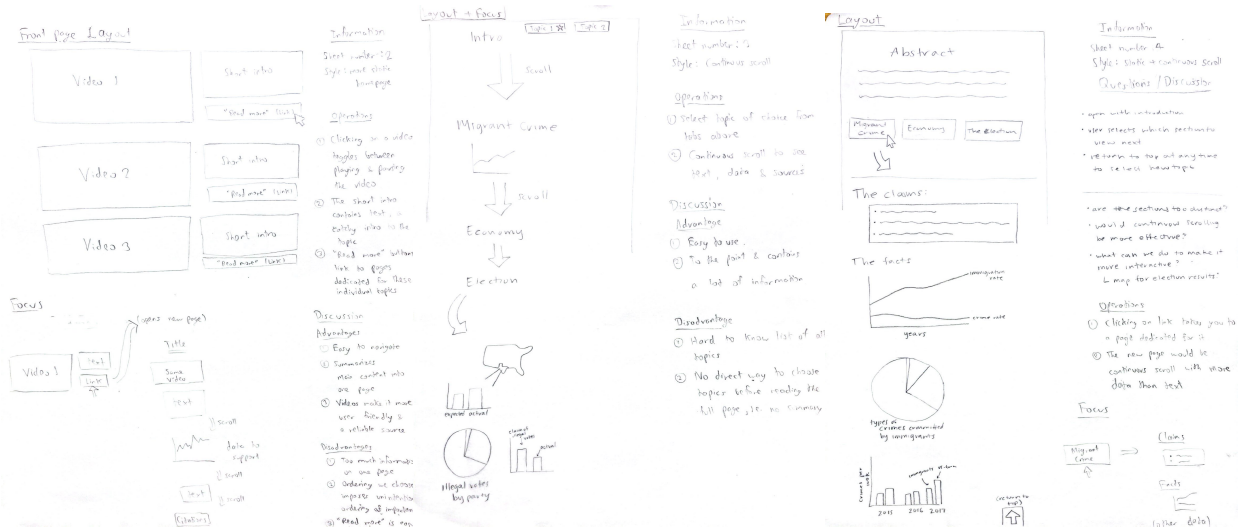 Front page Layout
Video 1
Short intro
"Read more" (link)
Video 2
Short intro
"Read more" (link)
Video 3
Short intro
"Read more" (link)
Focus
(opens new page)
Video 1
text
link
Title
Same
video
text
scroll
data to
support
scroll
text
scroll
Citations
Information
Sheet number: 2
Style: most static
homepage
Operations
① Clicking on a video
toggles between
playing & pausing
the video
② The short intro
contains text, a
catchy intro to the
topic
③ "Read more" buttons
link to pages
dedicated for these
individual topics
Discussion
Advantages
① Easy to navigate
② Summarizes
main content into
one page
③ Videos make it more
user friendly &
a reliable source
Disadvantages
① Too much information
on one page
② Ordering we choose
imposes unintention
ordering of importan
③ "Read more" is
Layout + Focus
Topic 1
Topic 2
Intro
Scroll
Migrant Crime
scroll
Economy
Election
expected actual
illegal votes
by party
claimed
illegal
votes
actual
Information
Sheet number: 3
Style: Continuous scroll
Operations
① Select topic of choice from
tabs above
② Continuous scroll to see
text, data & sources
Discussion
Advantage
① Easy to use.
② To the point & contains
a lot of information
Disadvantage
① Hard to know list of all
topics
② No direct way to choose
topics before reading the
full page, i.e. no summary
Layout
Abstract
Migrant
Crime
Economy
The Election
The claims:
The facts
immigration
rate
crime rate
years
types of
crimes committed
by immigrants
crimes per
week
immigrants
us-born
2015 2016 2017
(return to
top)
Information
Sheet number: 4
Style: static + continuous scroll
Questions / Discussion
• open with introduction
• user selects which section to
view next
• return to top at any time
to select new topic
• are the sections too distinct?
• would continuous scrolling
be more effective?
• what can we do to make it
more interactive?
↳ map for election results?
Operations
① Clicking on link takes you to
a page dedicated for it
② The new page would be
continuous scroll with more
data than text
Focus
Migrant
Crime
Claims
Facts
(other data)